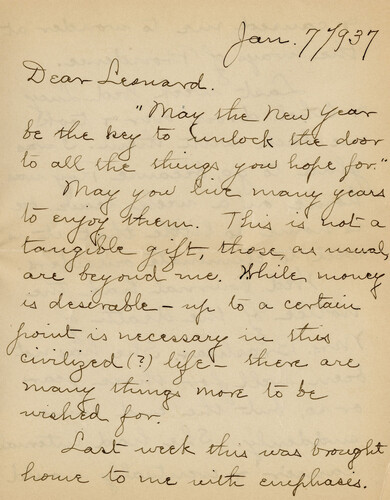 Jan. 7 1937
Dear Leonard.
"May the New Year
be the key to unlock the door
to all the things you hope for."
May you live many years
to enjoy them. This is not a
tangible gift, those, as usual,
are beyond me. While money
is desirable - up to a certain
point is necessary in this
civilized (?) life - there are
many things more to be
wished for.
Last week this was brought
home to me with emphases.